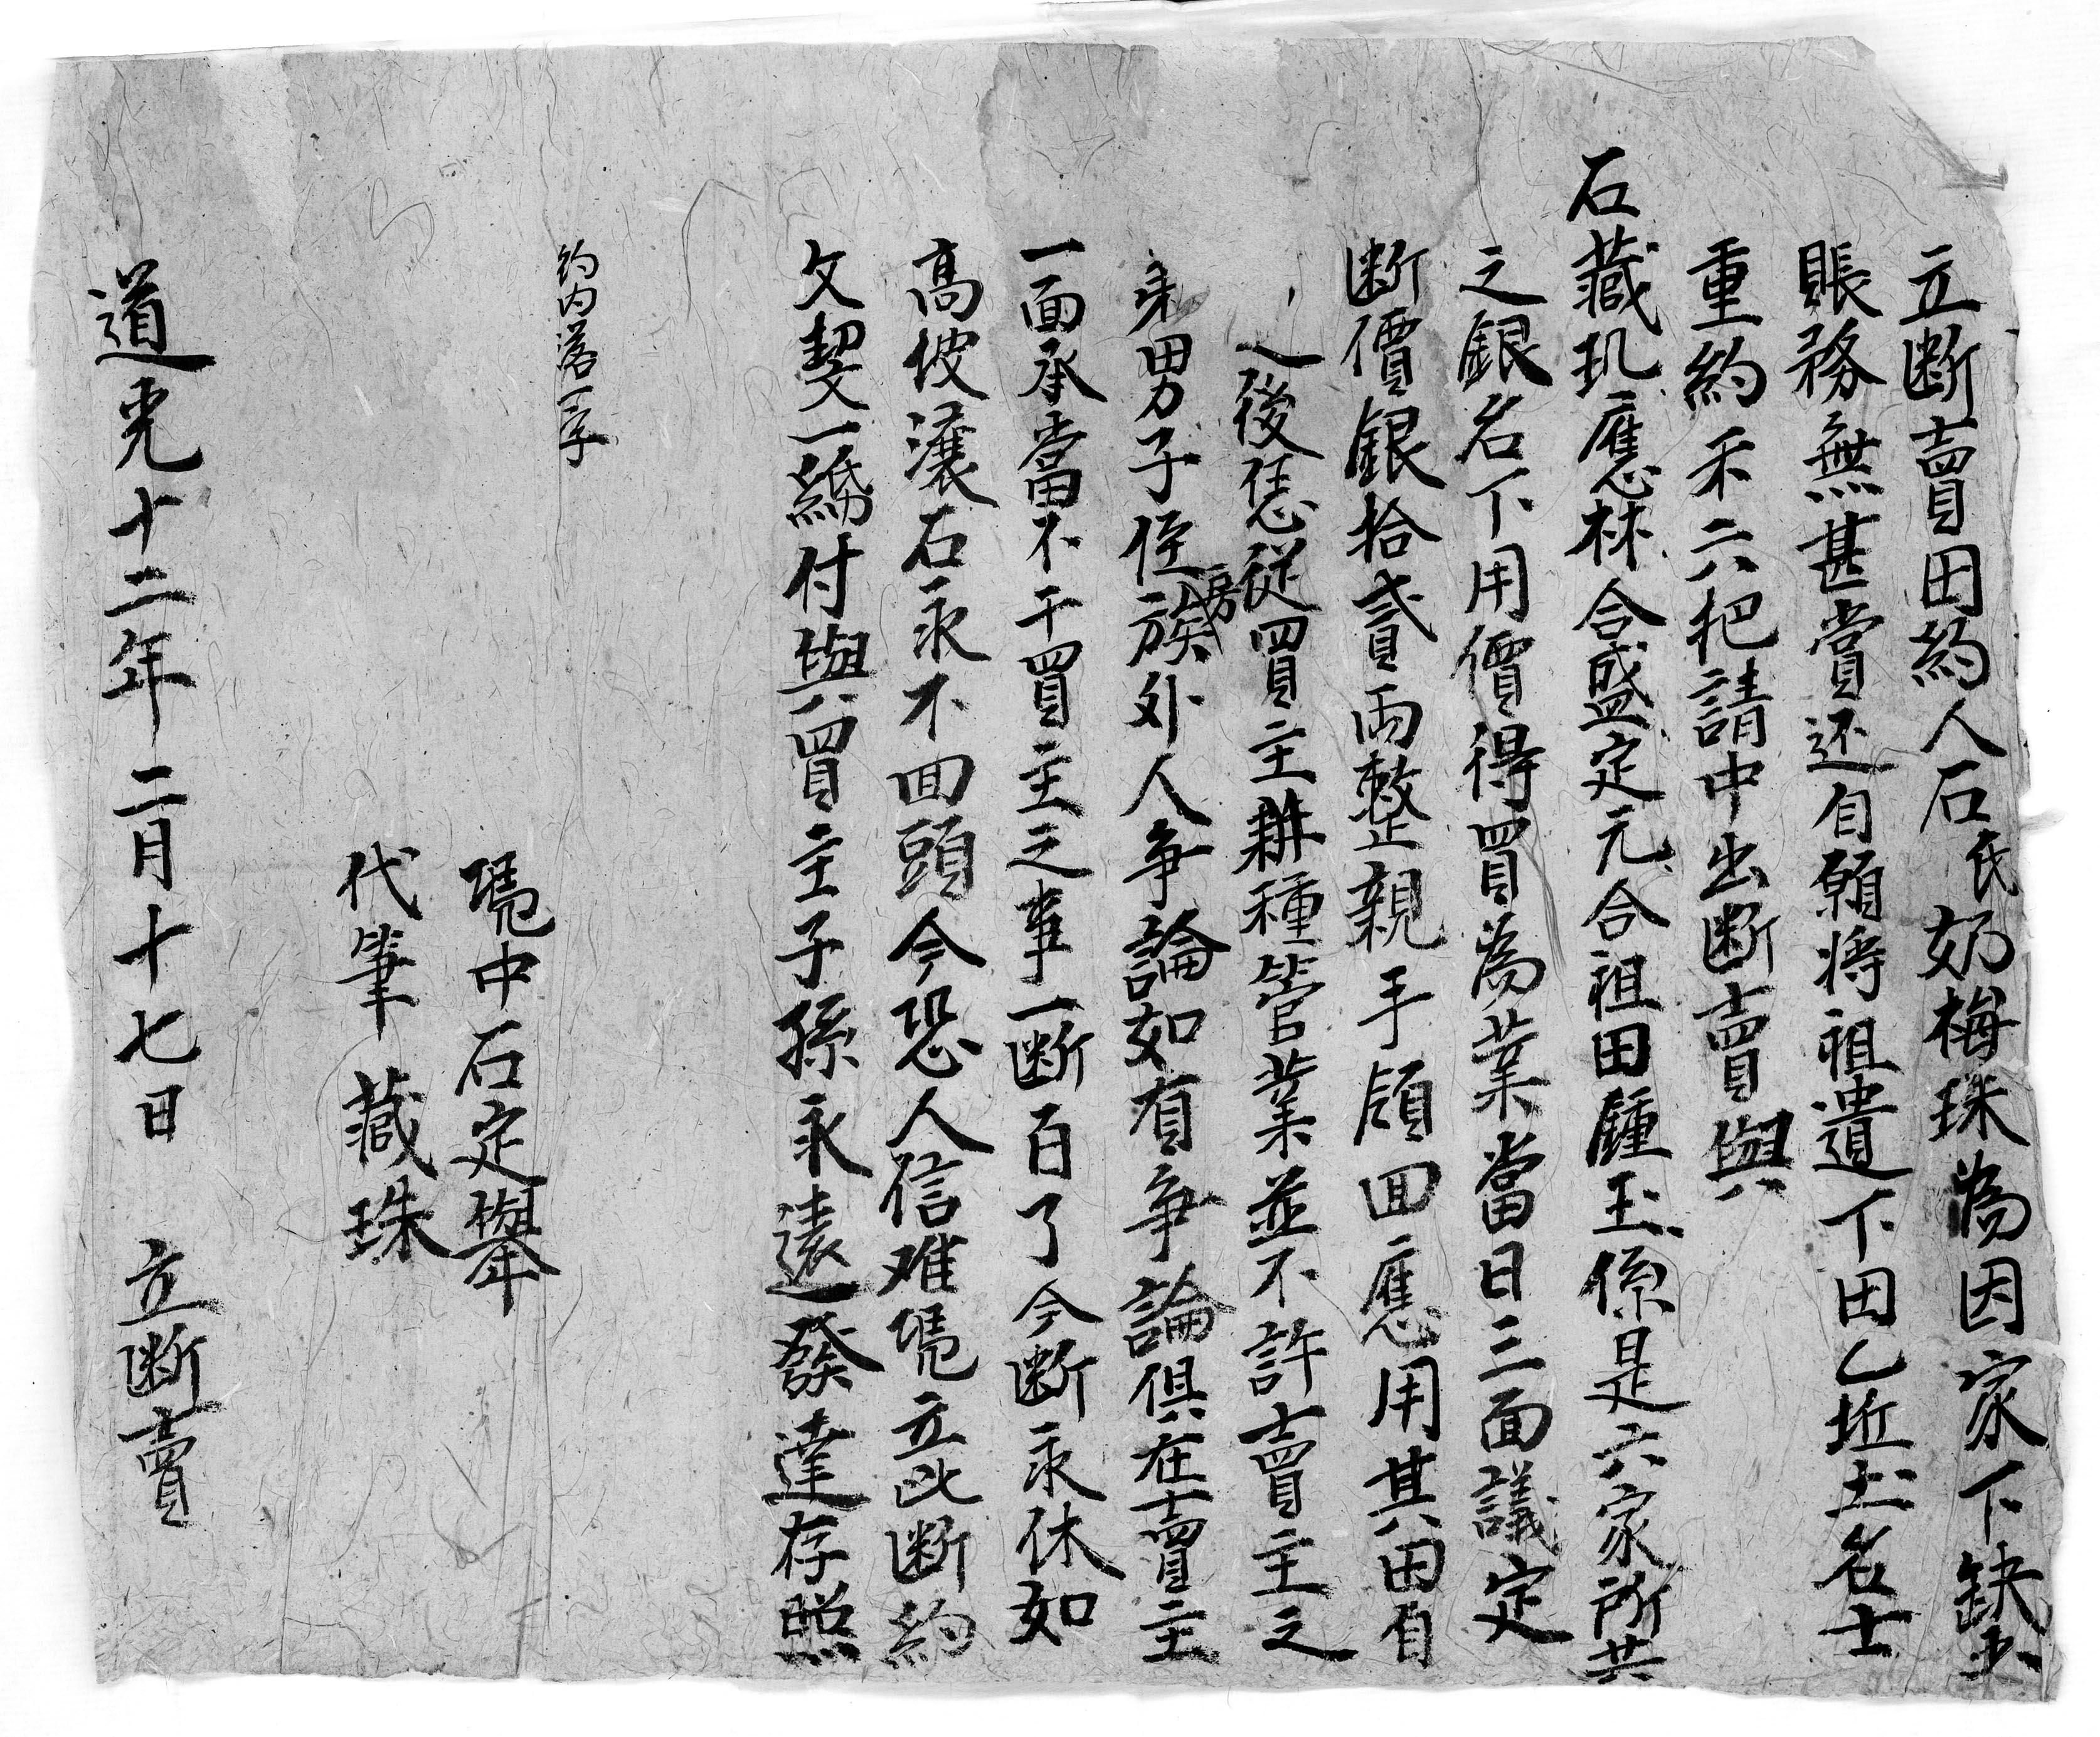 立断賣田約人石氏奶梅珠為因家下缺少
賬務無甚賞还自願將祖遺下田乙坵土名士
重約禾六把請中出断賣與
石藏玑應林合盛定元合祖田鍾玉係是六家所共
之銀名下用價得買為業當日三面議定
断價銀拾貳両整親手領回應用其田自
之後恁從買主耕種管業並不許賣主之
弟男子侄房族外人争論如有争論俱在賣主
一面承當不干買主之事一断百了今断永休如
高坡滾石永不回頭今恐人信难凴立此断約
文契一紙付與買主子孫永遠發達存照
約内落一字
凴中石定舉
代筆 藏珠
道光十二年二月十七日 立断賣